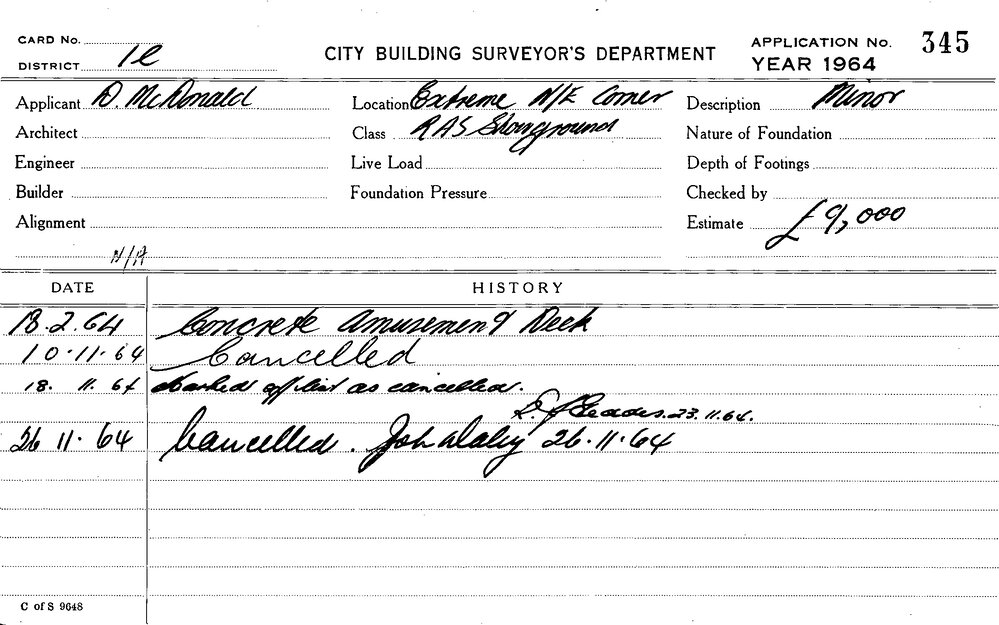 CARD No.
DISTRICT 1e
CITY BUILDING SURVEYOR'S DEPARTMENT
APPLICATION No. 345
YEAR 1964
Applicant D. McDonald
Location Extreme N/E Corner
Description Minor
Architect
Class RAS Showground
Nature of Foundation
Engineer
Live Load
Depth of Footings
Builder
Foundation Pressure
Checked by
Alignment
Estimate £9,000
N/A
DATE HISTORY
18.2.64 Concrete Amusement Deck
10.11.64 Cancelled
18. 11. 64 Marked off list as cancelled.
23.11.64.
26 11.64 Cancelled. John Daley 26.11.64
C of S 9648